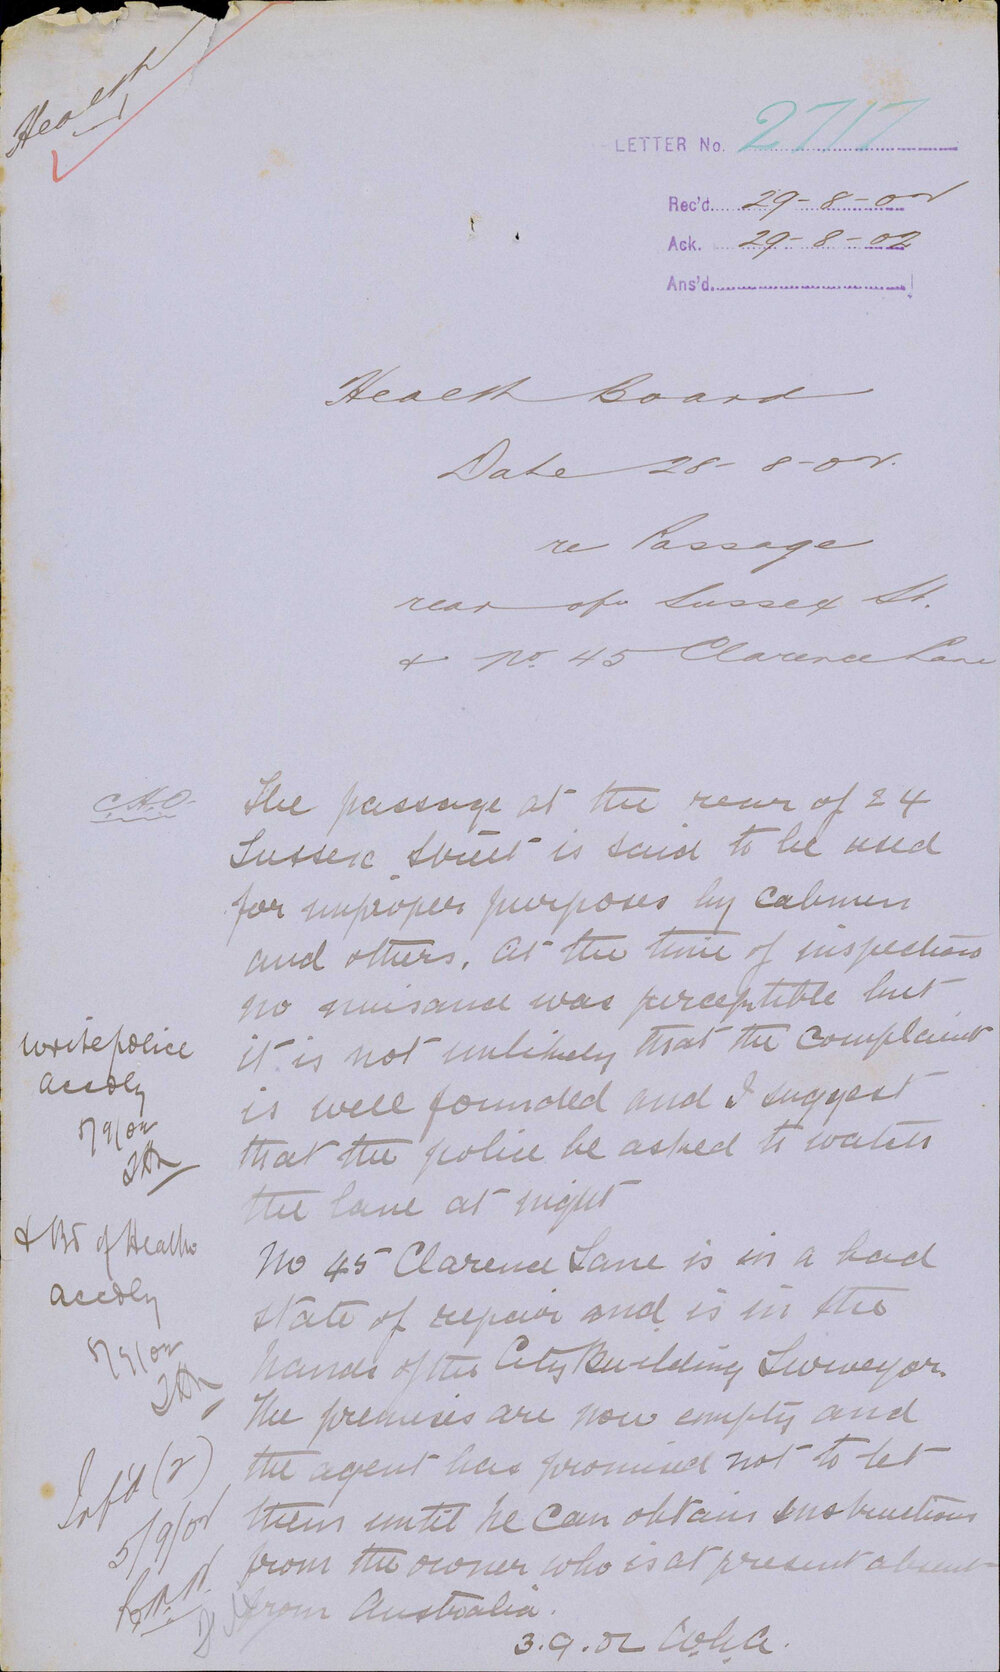 Health
LETTER No. 2717
Rec'd. 29-8-02
Ack. 29-8-02
Ans'd.
Health Board
Date 28-8-02.
re Passage
rear of Sussex St.
& No. 45 Clarence Lane
C.H.O.
The passage at the rear of 24
Sussex Street is said to be used
for improper purposes by cabmen
and others. At the time of inspection
no nuisance was perceptible but
it is not unlikely that the complaint
is well founded and I suggest
that the police be asked to watch
the lane at night
No 45 Clarence Lane is in a bad
state of repair and is in the
hands of the City Building Surveyor.
The premises are now empty and
the agent has promised not to let
them until he can obtain instructions
from the owner who is at present absent
from Australia.
3.9.02
write police
accdly
5/9/02
& Bd of Health
accdly
5/9/02
Inf'd (2)
5/9/02